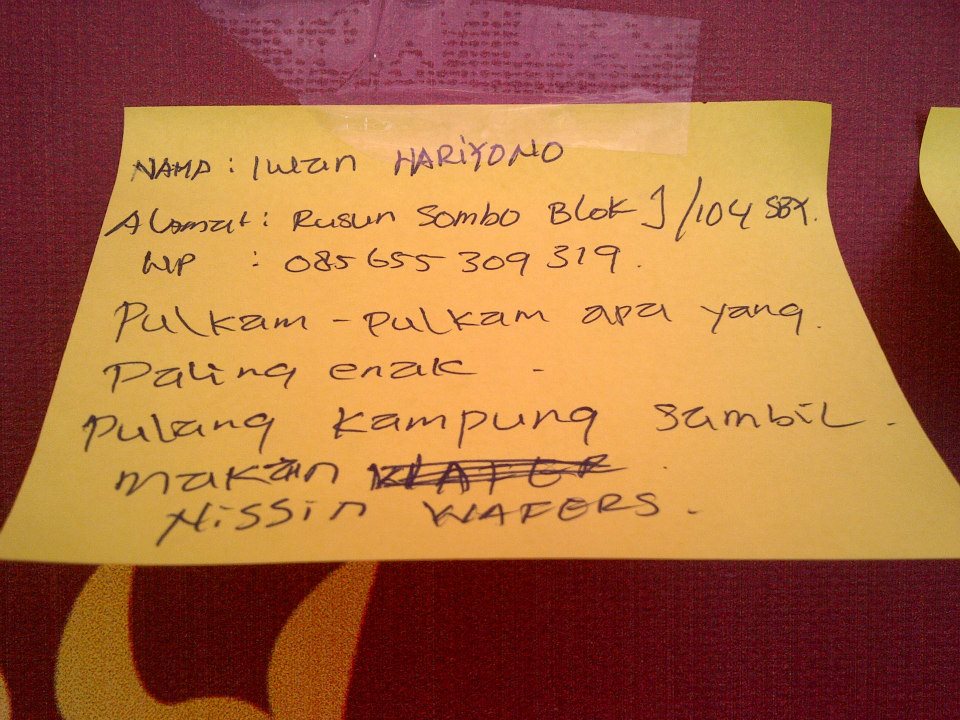 NAMA : Iwan HARIYONO
Alamat : Rusun Sombo Blok J/104 SBY.
HP : 085 655 309 319.
Pulkam - pulkam apa yang.
Paling enak -
Pulang kampung sambil.
makan WAFER.
Nissin WAFERS.